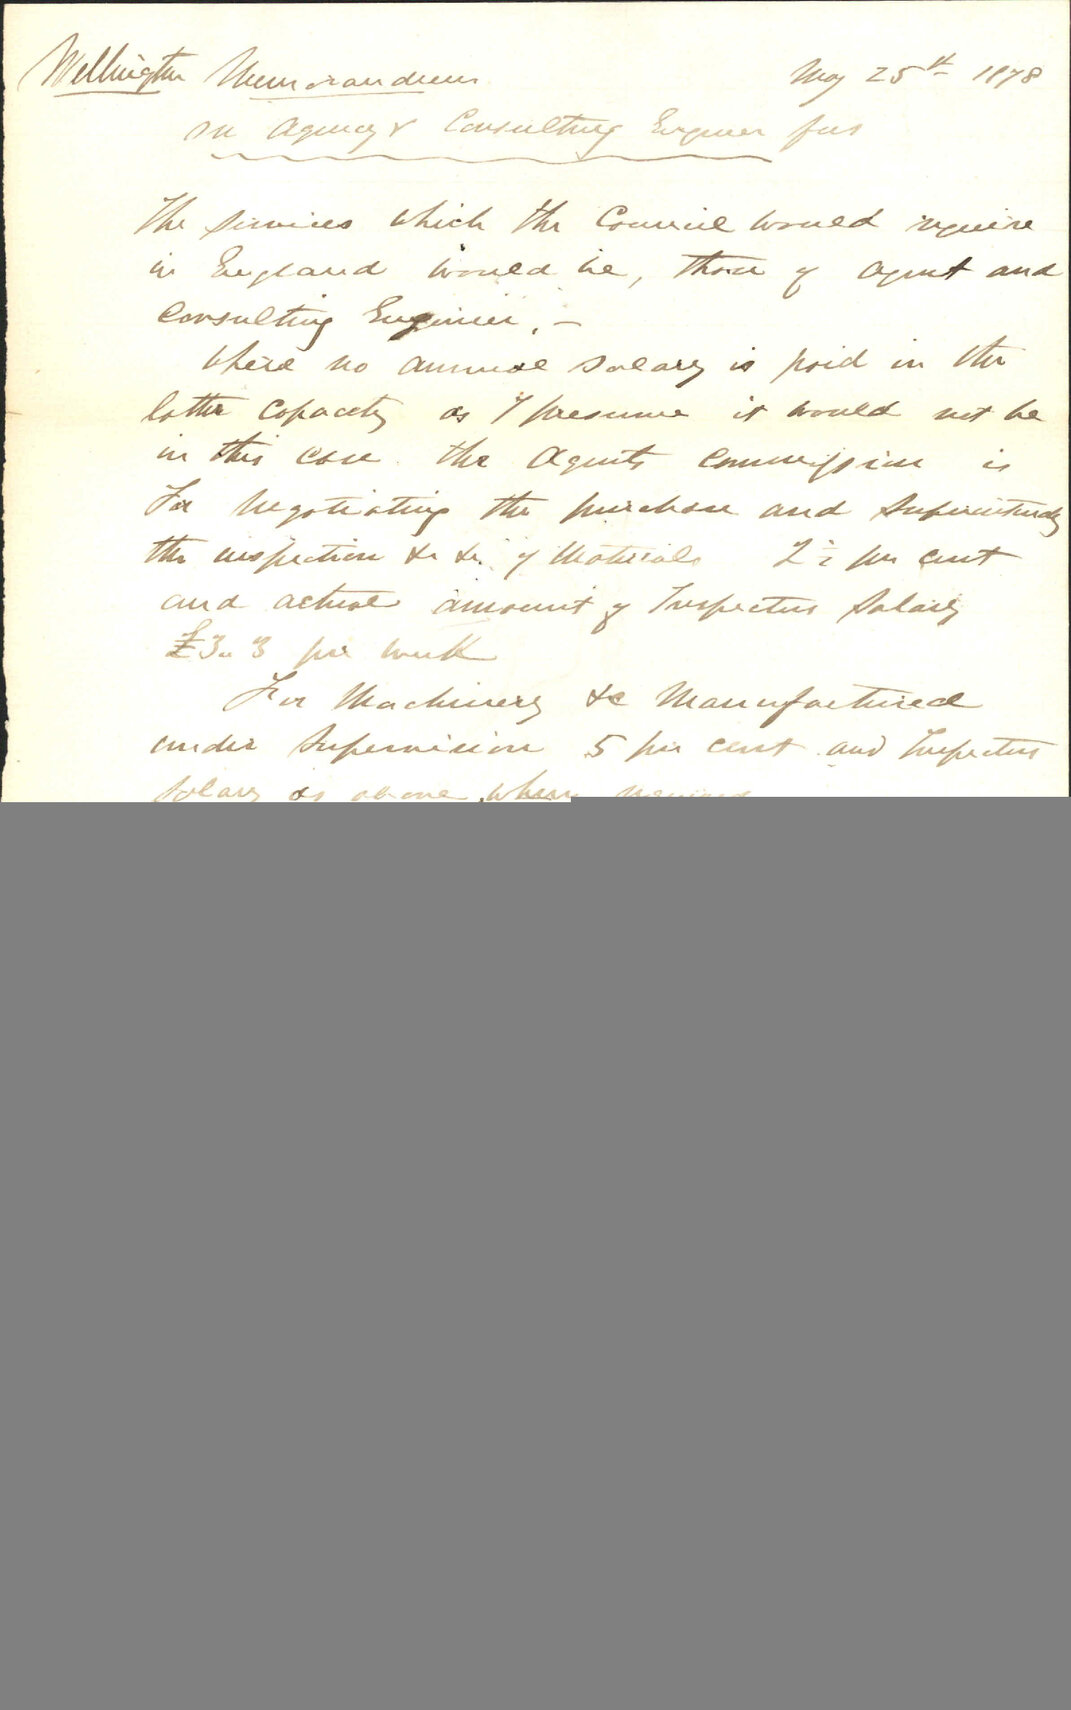 Wellington Memorandum May 25th 1878
on Agency & Consulting Engineer fees
The services which the Council would require
in England would be, those of Agent and
Consulting Engineer. —
Where no annual salary is paid in the
latter capacity as I presume it would not be
in this case the Agents commission is
For negotiating the purchase and Superintendg
the inspection &c &c of Materials 2½ per cent
and actual amount of Inspectors Salary
£3.3 per week
For Machinery &c Manufactured
under Supervision 5 per cent and Inspectors
salary as above where required